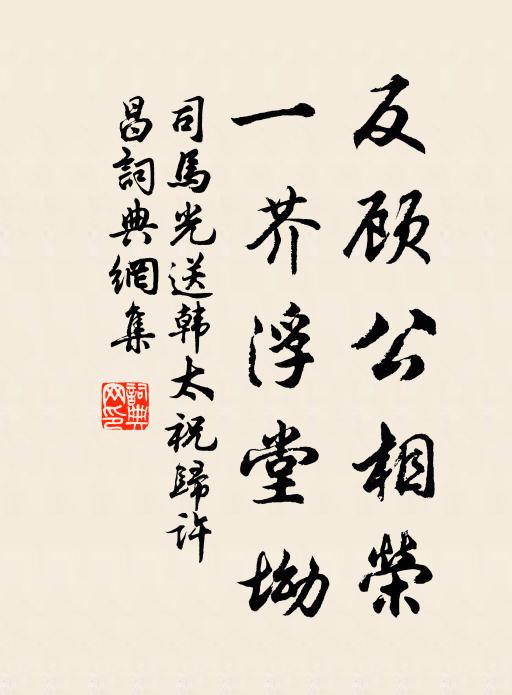 反顾公相榮
一芥浮堂坳
司馬光送韩太祝歸许
昌詞典網集
詞典網印